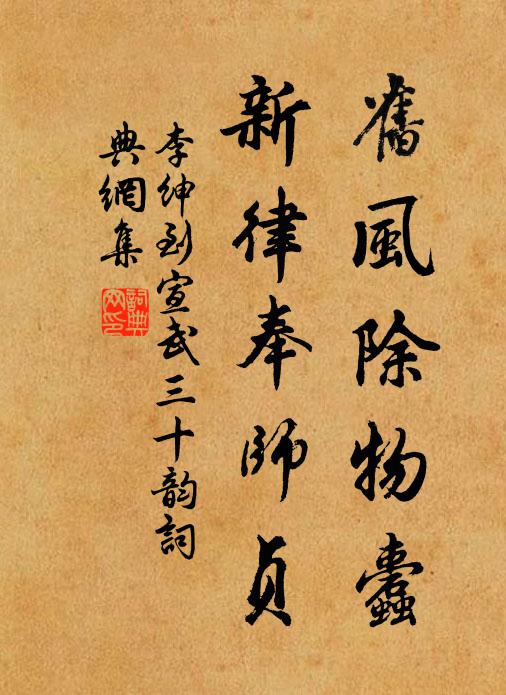 舊風除物蠹
新律奉師貞
李紳到宣武三十韵詞
典網集
詞典網印